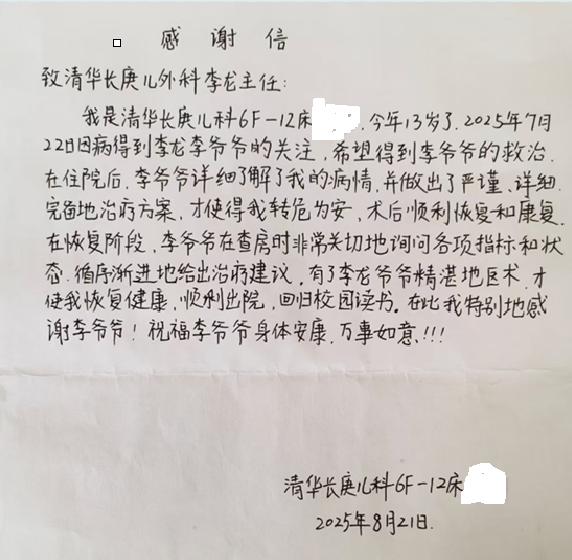 感谢信
致清华长庚儿外科李龙主任:
我是清华长庚儿科6F-12床 ,今年13岁了,2025年7月
22日因病得到李龙李爷爷的关注,希望得到李爷爷的救治.
在住院后,李爷爷详细了解了我的病情,并做出了严谨、详细、
完备地治疗方案,才使得我转危为安,术后顺利恢复和康复.
在恢复阶段,李爷爷在查房时非常关切地询问各项指标和状
态.循序渐进地给出治疗建议,有了李龙爷爷精湛地医术,才
使我恢复健康,顺利出院,回归校园读书。在此我特别地感
谢李爷爷!祝福李爷爷身体安康,万事如意!!!
清华长庚儿科6F-12床
2025年8月21日.